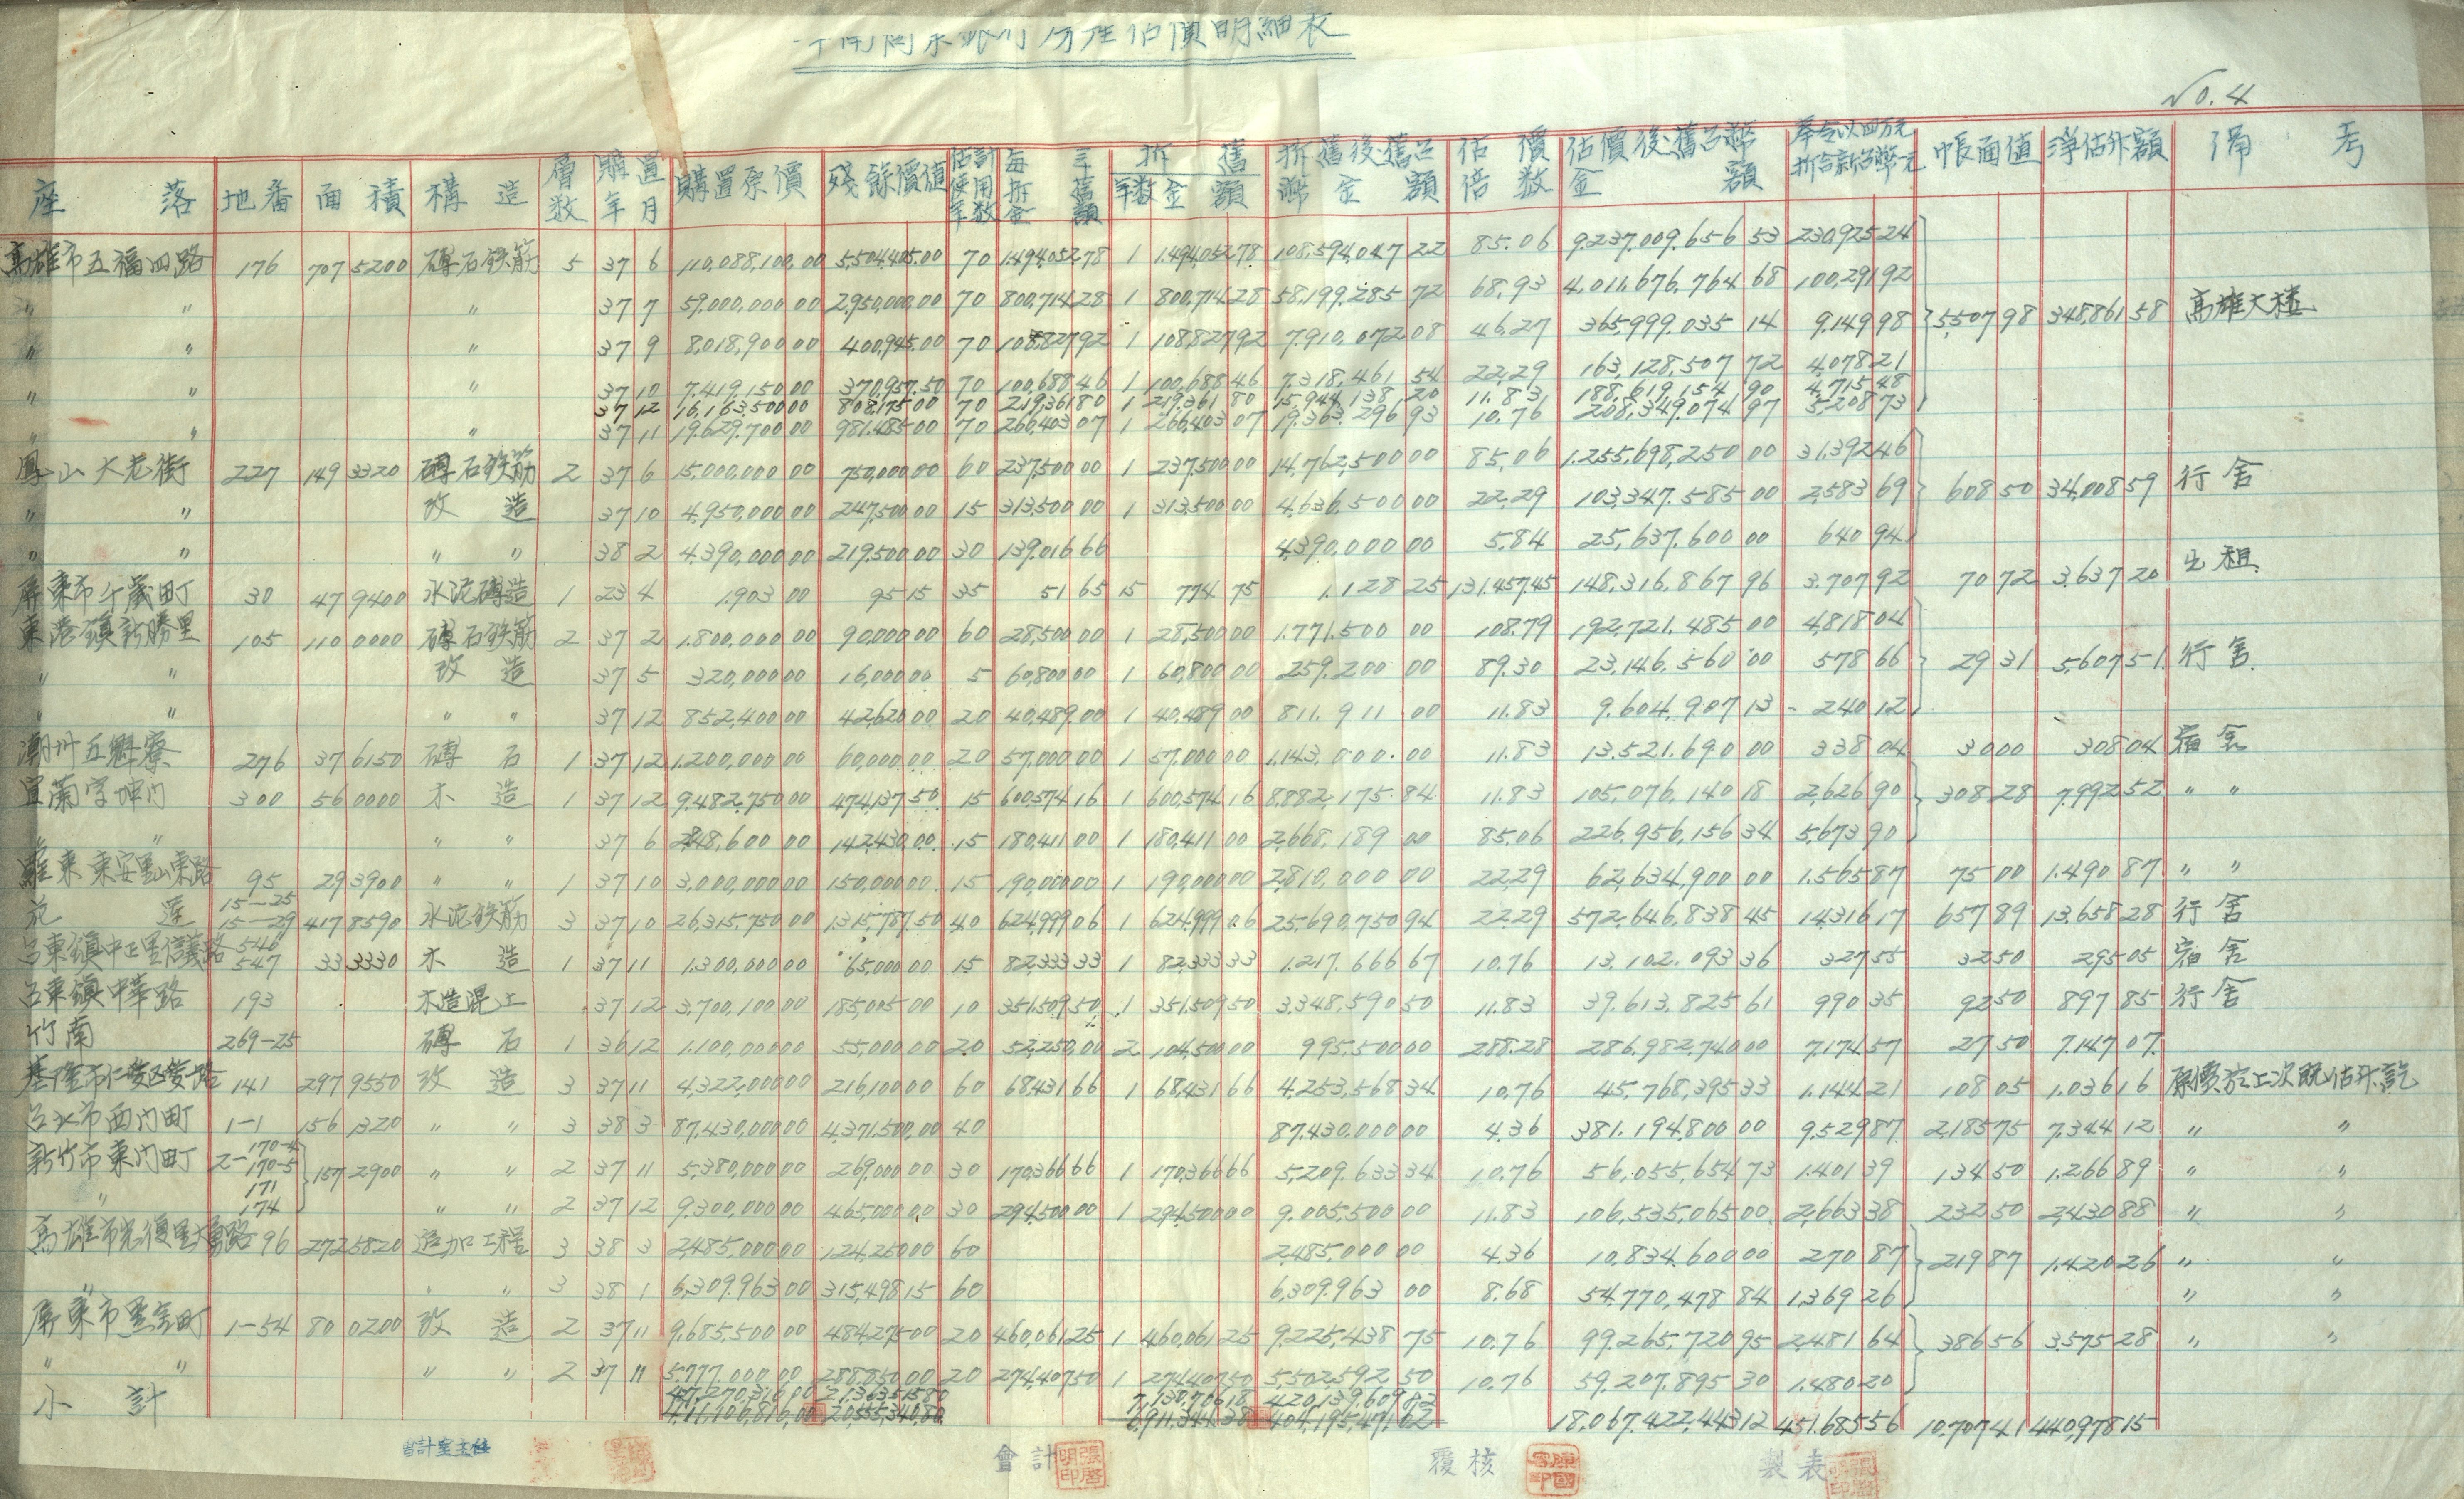 房產估價明細表
No. 4
座落 地番 面積 構造 層數 購置年月 購置原價 殘餘價值 估計使用年數 每年折舊金額 折舊年數 金額 折舊後舊台幣金額 估價倍數 估價後舊台幣金額 奉令以四万元折合新台幣一元 帳面值 淨估升額 備考
高雄市五福四路 176 707 5200 磚石鉄筋 5 37 6 110,088,100.00 5,504,405.00 70 1,494,052.78 1 1,494,052.78 108,594,047 22 85.06 9,237,009,656 53 230,925 24
〃 〃 〃 37 7 59,000,000 00 2,950,000.00 70 800,714 28 1 800,714 28 58,199,285 72 68.93 4,011,676,764 68 100,291 92
〃 〃 〃 37 9 8,018,900 00 400,945.00 70 108,827 92 1 108,827 92 7,910,072 08 46.27 365,999,035 14 9,149 98 5,507 98 348,861 58 高雄大樓
〃 〃 〃 37 10 7,419,150 00 370,957.50 70 100,688 46 1 100,688 46 7,318,461 54 22.29 163,128,507 72 4,078 21
37 12 16,163,500 00 808,175 00 70 219,361 80 1 219,361 80 15,944,138 20 11.83 188,619,154 90 4,715 48
〃 〃 〃 37 11 19,629,700 00 981,485 00 70 266,403 07 1 266,403 07 19,363,296 93 10.76 208,349,074 97 5,208 73
鳳山大老街 227 149 3320 磚石鉄筋 2 37 6 15,000,000 00 750,000 00 60 237,500 00 1 237,500 00 14,762,500 00 85.06 1,255,698,250 00 31,392 46
〃 〃 改造 37 10 4,950,000 00 247,500 00 15 313,500 00 1 313,500 00 4,636,500 00 22.29 103,347,585 00 2,583 69 608 50 34,008 59 行舍
〃 〃 〃 〃 38 2 4,390,000 00 219,500 00 30 139,016 66 4,390,000 00 5.84 25,637,600 00 640 94
屏東市千歲町 30 47 9400 水泥磚造 1 23 4 1,903 00 95 15 35 51 65 15 774 75 1,128 25 131,457.45 148,316,867 96 3,707 92 70 72 3,637 20 出租
東港鎮新勝里 105 110 0000 磚石鉄筋 2 37 2 1,800,000 00 90,000 00 60 28,500 00 1 28,500 00 1,771,500 00 108.79 192,721,485 00 4,818 04
〃 〃 改造 37 5 320,000 00 16,000 00 5 60,800 00 1 60,800 00 259,200 00 89.30 23,146,560 00 578 66 29 31 5,607 51 行舍
〃 〃 〃 〃 37 12 852,400 00 42,620 00 20 40,489 00 1 40,489 00 811,911 00 11.83 9,604,907 13 240 12
潮州五魁寮 276 37 6150 磚石 1 37 12 1,200,000 00 60,000 00 20 57,000 00 1 57,000 00 1,143,000.00 11.83 13,521,690 00 338 04 30 00 308 04 宿舍
宜蘭字坤門 300 56 0000 木造 1 37 12 9,482,750 00 474,137 50 15 600,574 16 1 600,574 16 8,882,175.84 11.83 105,076,140 18 2,626 90 308 28 7,992 52 〃 〃
〃 〃 〃 〃 37 6 2,848,600 00 142,430 00 15 180,411 00 1 180,411 00 2,668,189 00 85.06 226,956,156 34 5,673 90
羅東東安里山東路 95 29 3900 〃 〃 1 37 10 3,000,000 00 150,000 00 15 190,000 00 1 190,000 00 2,810,000 00 22.29 62,634,900 00 1,565 87 75 00 1,490 87 〃 〃
花蓮 15-25 15-29 417 8590 水泥鉄筋 3 37 10 26,315,750 00 1,315,787.50 40 624,999 06 1 624,999 06 25,690,750 94 22.29 572,646,838 45 14,316 17 657 89 13,658 28 行舍
台東鎮中正里信義路 546 547 33 3330 木造 1 37 11 1,300,000 00 65,000 00 15 82,333 33 1 82,333 33 1,217,666 67 10.76 13,102,093 36 327 55 32 50 295 05 宿舍
台東鎮中華路 193 木造混土 37 12 3,700,100 00 185,005 00 10 351,509 50 1 351,509 50 3,348,590 50 11.83 39,613,825 61 990 35 92 50 897 85 行舍
竹南 269-25 磚石 1 36 12 1,100,000 00 55,000 00 20 52,250 00 2 104,500 00 995,500 00 288.28 286,982,740 00 7,174 57 27 50 7,147 07
基隆市仁愛區愛一路 141 297 9550 改造 3 37 11 4,322,000 00 216,100 00 60 68,431 66 1 68,431 66 4,253,568 34 10.76 45,768,395 33 1,144 21 108 05 1,036 16 原價於上次既估升訖
台北市西門町 1-1 156 1320 〃 〃 3 38 3 87,430,000 00 4,371,500 00 40 87,430,000 00 4.36 381,194,800 00 9,529 87 2,185 75 7,344 12 〃 〃
新竹市東門町 2-170-4 170-5 171 157 2900 〃 〃 2 37 11 5,380,000 00 269,000 00 30 170,366 66 1 170,366 66 5,209,633 34 10.76 56,055,654 73 1,401 39 134 50 1,266 89 〃 〃
〃 174 〃 〃 2 37 12 9,300,000 00 465,000 00 30 294,500 00 1 294,500 00 9,005,500 00 11.83 106,535,065 00 2,663 38 232 50 2,430 88 〃 〃
高雄市光復里大勇路 96 272 5820 追加工程 3 38 3 2,485,000 00 124,250 00 60 2,485,000 00 4.36 10,834,600 00 270 87 219 87 1,420 26 〃 〃
〃 〃 〃 3 38 1 6,309,963 00 315,498 15 60 6,309,963 00 8.68 54,770,478 84 1,369 26 〃 〃
屏東市黑金町 1-54 80 0200 改造 2 37 11 9,685,500 00 484,275 00 20 460,061 25 1 460,061 25 9,225,438 75 10.76 99,265,720 95 2,481 64 386 56 3,575 28 〃 〃
〃 〃 〃 〃 2 37 11 5,777,000 00 288,850 00 20 274,407 50 1 274,407 50 5,502,592 50 10.76 59,207,895 30 1,480 20
小計 427,270,316,00 21,363,515 80 7,130,706 18 420,139,609 82
411,106,816,00 20,555,340,80 6,911,344 38 404,195,471 62 18,067,422,443 12 451,685 56 10,707 41 440,978 15
會計室主任 會計 張啓明印 覆核 製表